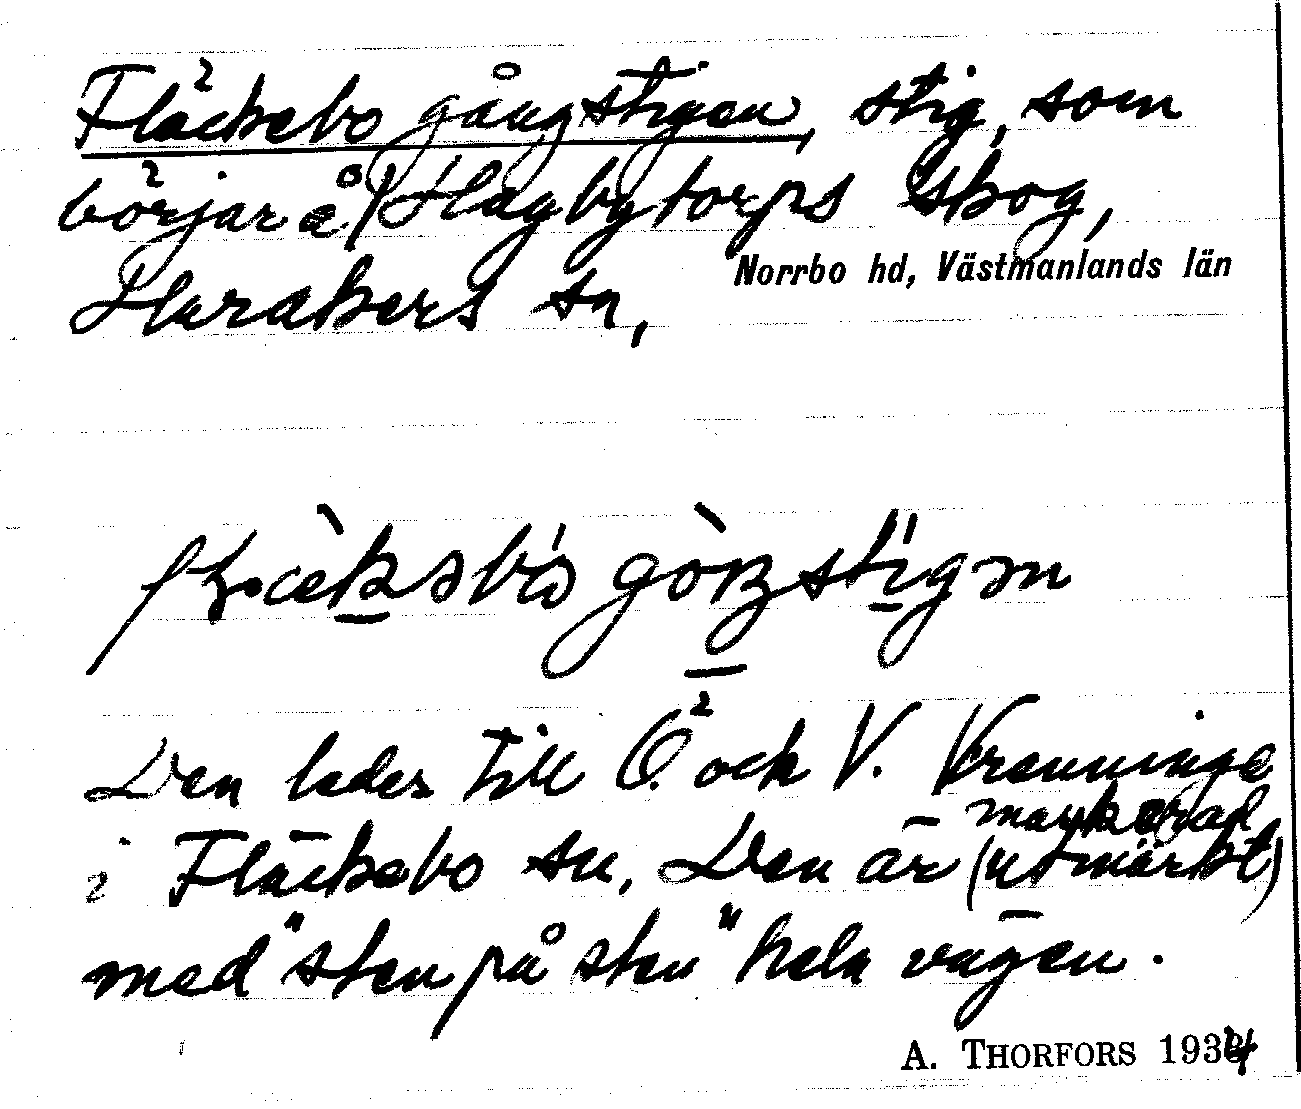 Fläckebo gångstigen, stig, som
börjar å Hagbytorps skog,
Harakers sn,
Norrbo hd, Västmanlands län
Den leder till Ö. och V. Vrenninge
i Fläckebo sn. Den är (utmärkt)
markerad
med "sten på sten" hela vägen.
A. THORFORS 1934